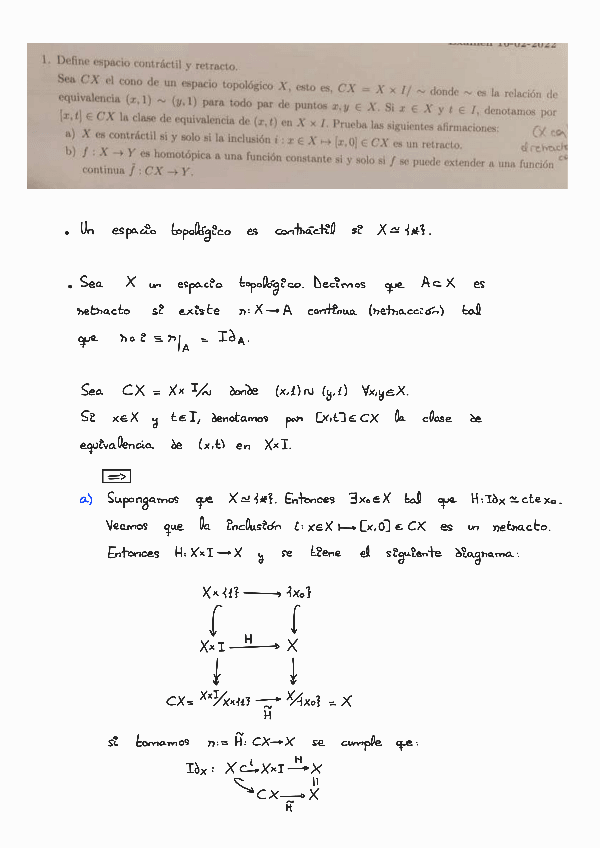 Examen 10-02-2022
1. Define espacio contráctil y retracto.
Sea CX el cono de un espacio topológico X, esto es, CX = X × I/ ∼ donde ∼ es la relación de
equivalencia (x, 1) ∼ (y, 1) para todo par de puntos x, y ∈ X. Si x ∈ X y t ∈ I, denotamos por
[x, t] ∈ CX la clase de equivalencia de (x, t) en X × I. Prueba las siguientes afirmaciones:
a) X es contráctil si y solo si la inclusión i : x ∈ X ↦ [x, 0] ∈ CX es un retracto.
b) f : X → Y es homotópica a una función constante si y solo si f se puede extender a una función
continua f̃ : CX → Y.
• Un espacio topológico es contráctil si X ≃ {*}.
• Sea X un espacio topológico. Decimos que A ⊂ X es
retracto si existe r: X → A continua (retracción) tal
que r ∘ i ≡ r|_A = Id_A.
Sea CX = X × I/∼ donde (x,1) ∼ (y,1) ∀x,y ∈ X.
Si x ∈ X y t ∈ I, denotamos por [x,t] ∈ CX la clase de
equivalencia de (x,t) en X×I.
=>
a) Supongamos que X ≃ {*}. Entonces ∃x₀ ∈ X tal que H: Id_X ≃ cte_x₀.
Veamos que la inclusión i: x ∈ X ↦ [x,0] ∈ CX es un retracto.
Entonces H: X×I → X y se tiene el siguiente diagrama:
X×{1} → {x₀}
X×I H → X
CX = X×I/X×{1} → X/{x₀} = X
H̃
si tomamos r := H̃: CX → X se cumple que:
Id_X: X i ↪ X×I H → X
CX → X
H̃